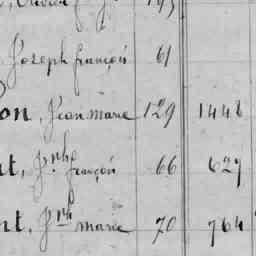 Joseph françois 61
on, Jean marie 129 1448
nt, Jph françois 66 627
nt, Jph marie 70 764